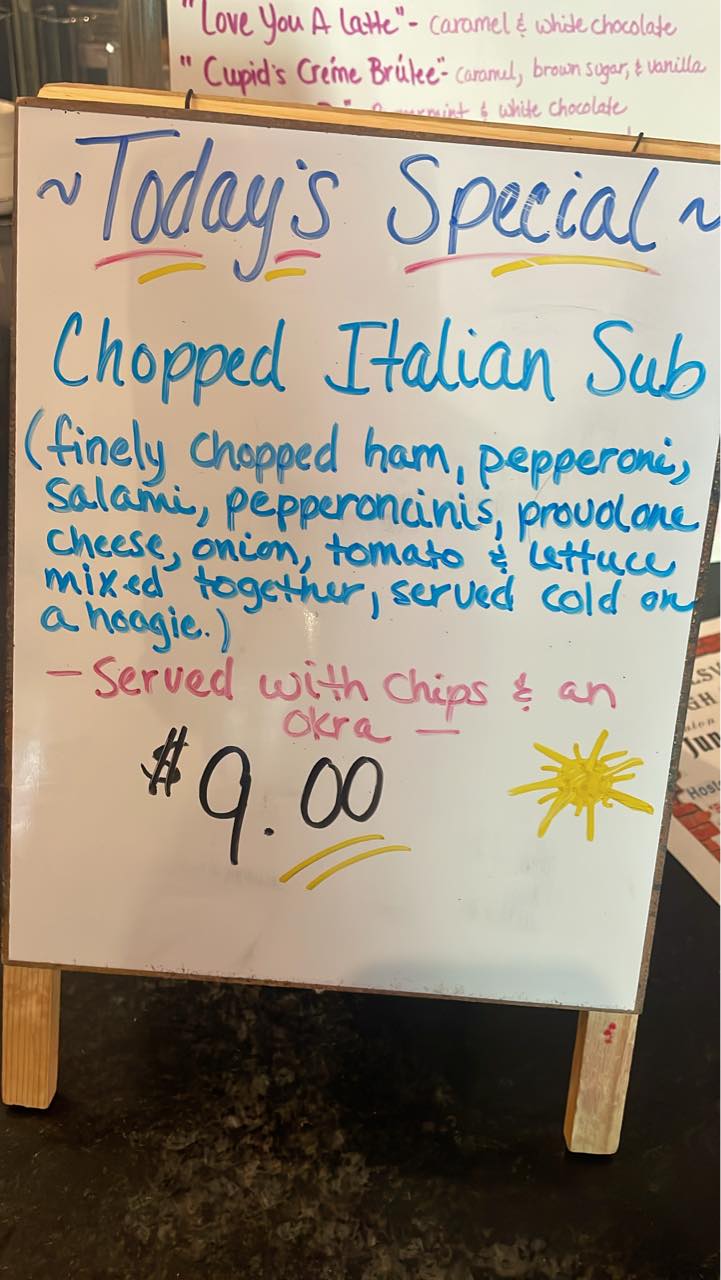 "Love You A Latte"- Caramel & white chocolate
"Cupid's Créme Brúlee"- Caramel, brown sugar, & vanilla
& white chocolate
~Today's Special~
Chopped Italian Sub
(finely chopped ham, pepperoni,
Salami, pepperoncinis, provolone
cheese, onion, tomato & lettuce
mixed together, served cold on
a hoagie.)
- Served with Chips & an
Okra -
$9.00
Jun
Host